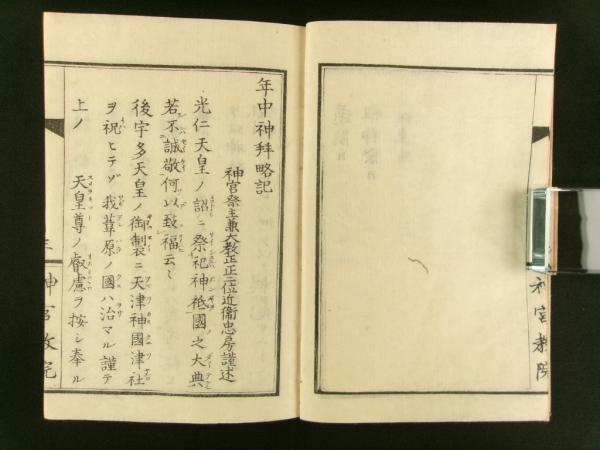 年中神拜略記
神宮祭主兼大教正正二位近衞忠房謹述
光仁天皇ノ詔ニ祭祀神祗國之大典
若不誠敬何以致福云々
後宇多天皇ノ御製ニ天津神國津社
ヲ祝ヒテゾ我葦原ノ國ハ治マル謹テ
上ノ 天皇尊ノ叡慮ヲ按シ奉ル
神宮教院